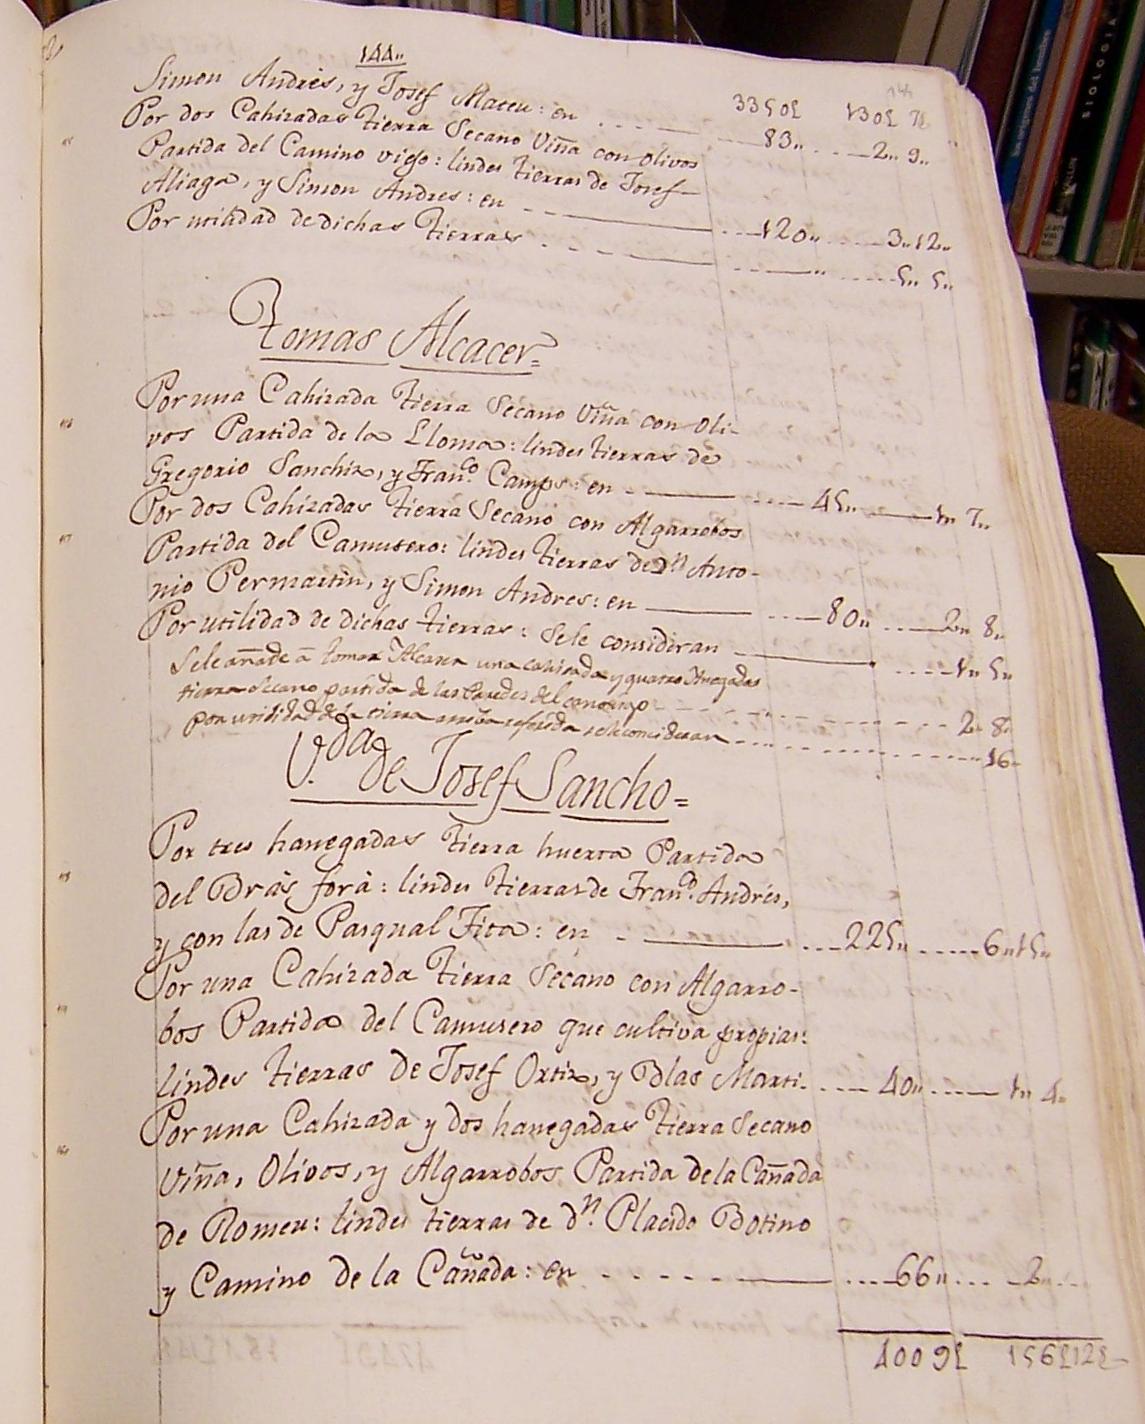 144.,
3350£ 130£ 7£
Simon Andrès, y Josef Mateu: en 83,, 2,, 9,,
Por dos Cahizadas tierra Secano Viña con olivos
Partida del Camino viejo: lindes tierras de Josef
Aliaga, y Simon Andres: en 120,, 3,, 12,,
Por utilidad de dichas tierras ,, 5,, 5,,
Tomas Alcacer=
Por una Cahizada tierra Secano Viña con Oli-
vos Partida de la Lloma: lindes tierras de
Gregorio Sanchiz, y Franco. Camps: en 45,, 1,, 7,,
Por dos Cahizadas tierra Secano con Algarrobos
Partida del Camusero: lindes tierras de Dn Anto-
nio Permartin, y Simon Andres: en 80,, 2,, 8,,
Por utilidad de dichas tierras: Sele consideran 1,, 5,,
Sele añade â tomas Alcaser una cahisada y quatro anegadas
tierra secano partida de las Paredes del 2,, 8,,
por utilidad de la tierra arriba referida sele consideran 16
V.da de Josef Sancho=
Por tres hanegadas tierra huerta Partida
del Bràs forà: lindes tierras de Frand. Andrés,
y con las de Pasqual Fita: en 225,, 6,, 15,,
Por una Cahizada tierra Secano con Algarro-
bos Partida del Camusero que cultiva propias:
lindes tierras de Josef Ortiz, y Blas Marti. 40,, 1,, 4,,
Por una Cahizada y dos hanegadas tierra Secano
Viña, Olivos, y Algarrobos Partida de la Cañada
de Romeu: lindes tierras de dn. Placido Botino
y Camino de la Cañada: en 66,, 2,,
4009£ 156£12£